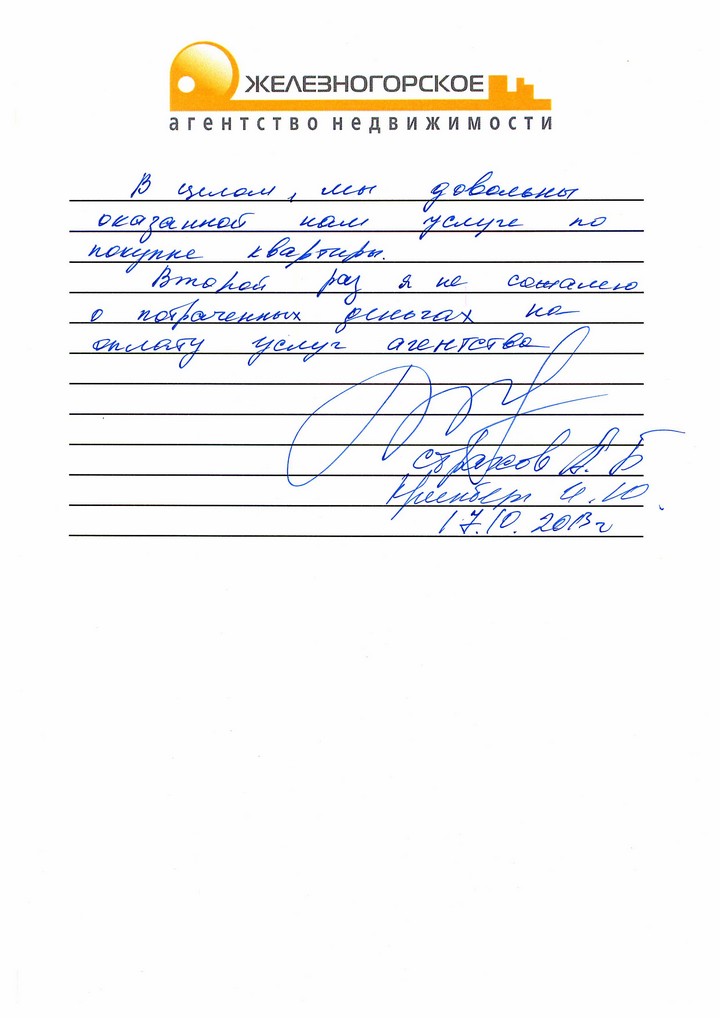 ЖЕЛЕЗНОГОРСКОЕ
агентство недвижимости
В целом, мы довольны
оказанной нам услуге по
покупке квартиры.
Второй раз я не сожалею
о потраченных деньгах на
оплату услуг агентства
Страхов А. Б
И.Ю.
17.10.2013г